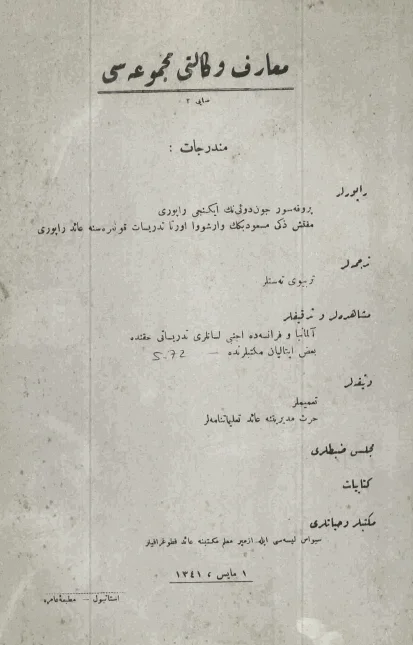 معارف وكالتى مجموعه سى
صايى ٢
مندرجات :
راپورلر
پروفه سور جون دوئى نك ايكنجى راپورى
مفتش ذكى مسعود بكك وارشووا اورتا تدريسات قونفره سنه عائد راپورى
ترجمه لر
تربيوى ته ستلر
مشاهده لر و تدقيقلر
آلمانيا و فرانسه ده اجنبى لسانلرى تدريساتى حقنده
بعض ايتاليان مكتبلرنده — 5.72
وثيقه لر
تعميملر
حرث مديريتنه عائد تعليماتنامه لر
مجلس ضبطلرى
كتابيات
مكتبلر و حياتلرى
سيواس ليسه سى ايله ازمير معلم مكتبنه عائد فطوغرافيلر
١ مايس ، ١٣٤١
استانبول — مطبعهٔ عامره